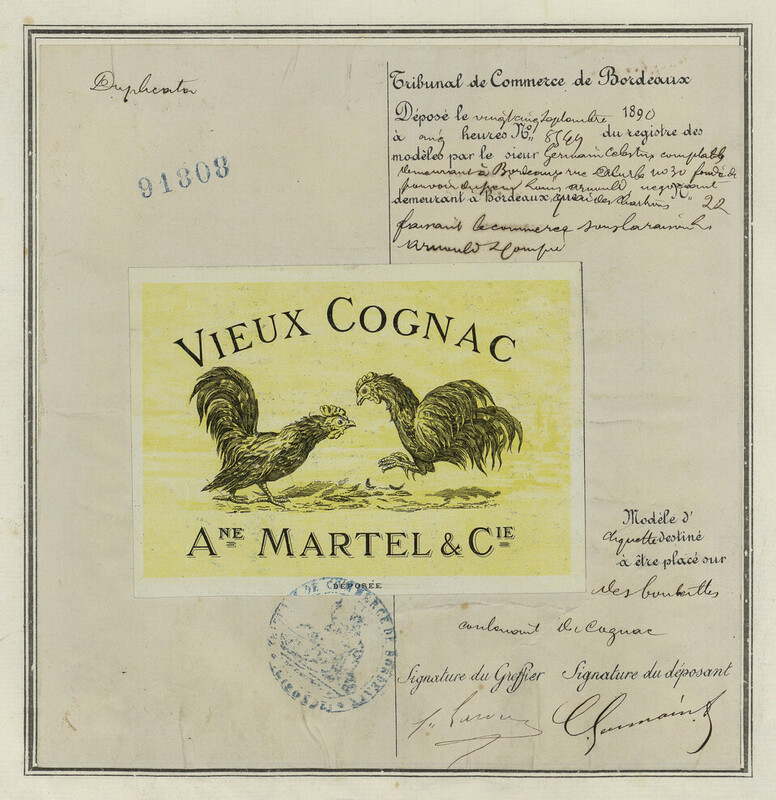 Duplicata
91808
Tribunal de Commerce de Bordeaux
Déposé le vingt cinq Septembre 1890
à onze heures N° du registre des
modèles par le sieur Germain comptable
demeurant à Bordeaux rue N° 30 fondé de
pouvoir du sieur Louis Arnould, negociant
demeurant à Bordeaux, quai des Chartrons N° 22
faisant le commerce sous la raison
Arnould & Compie
VIEUX COGNAC
ANE MARTEL & CIE
DÉPOSÉE
TRIBUNAL DE COMMERCE DE BORDEAUX
Modèle d'
étiquette destiné
à être placé sur
des bouteilles
contenant de Cognac
Signature du Greffier Signature du déposant